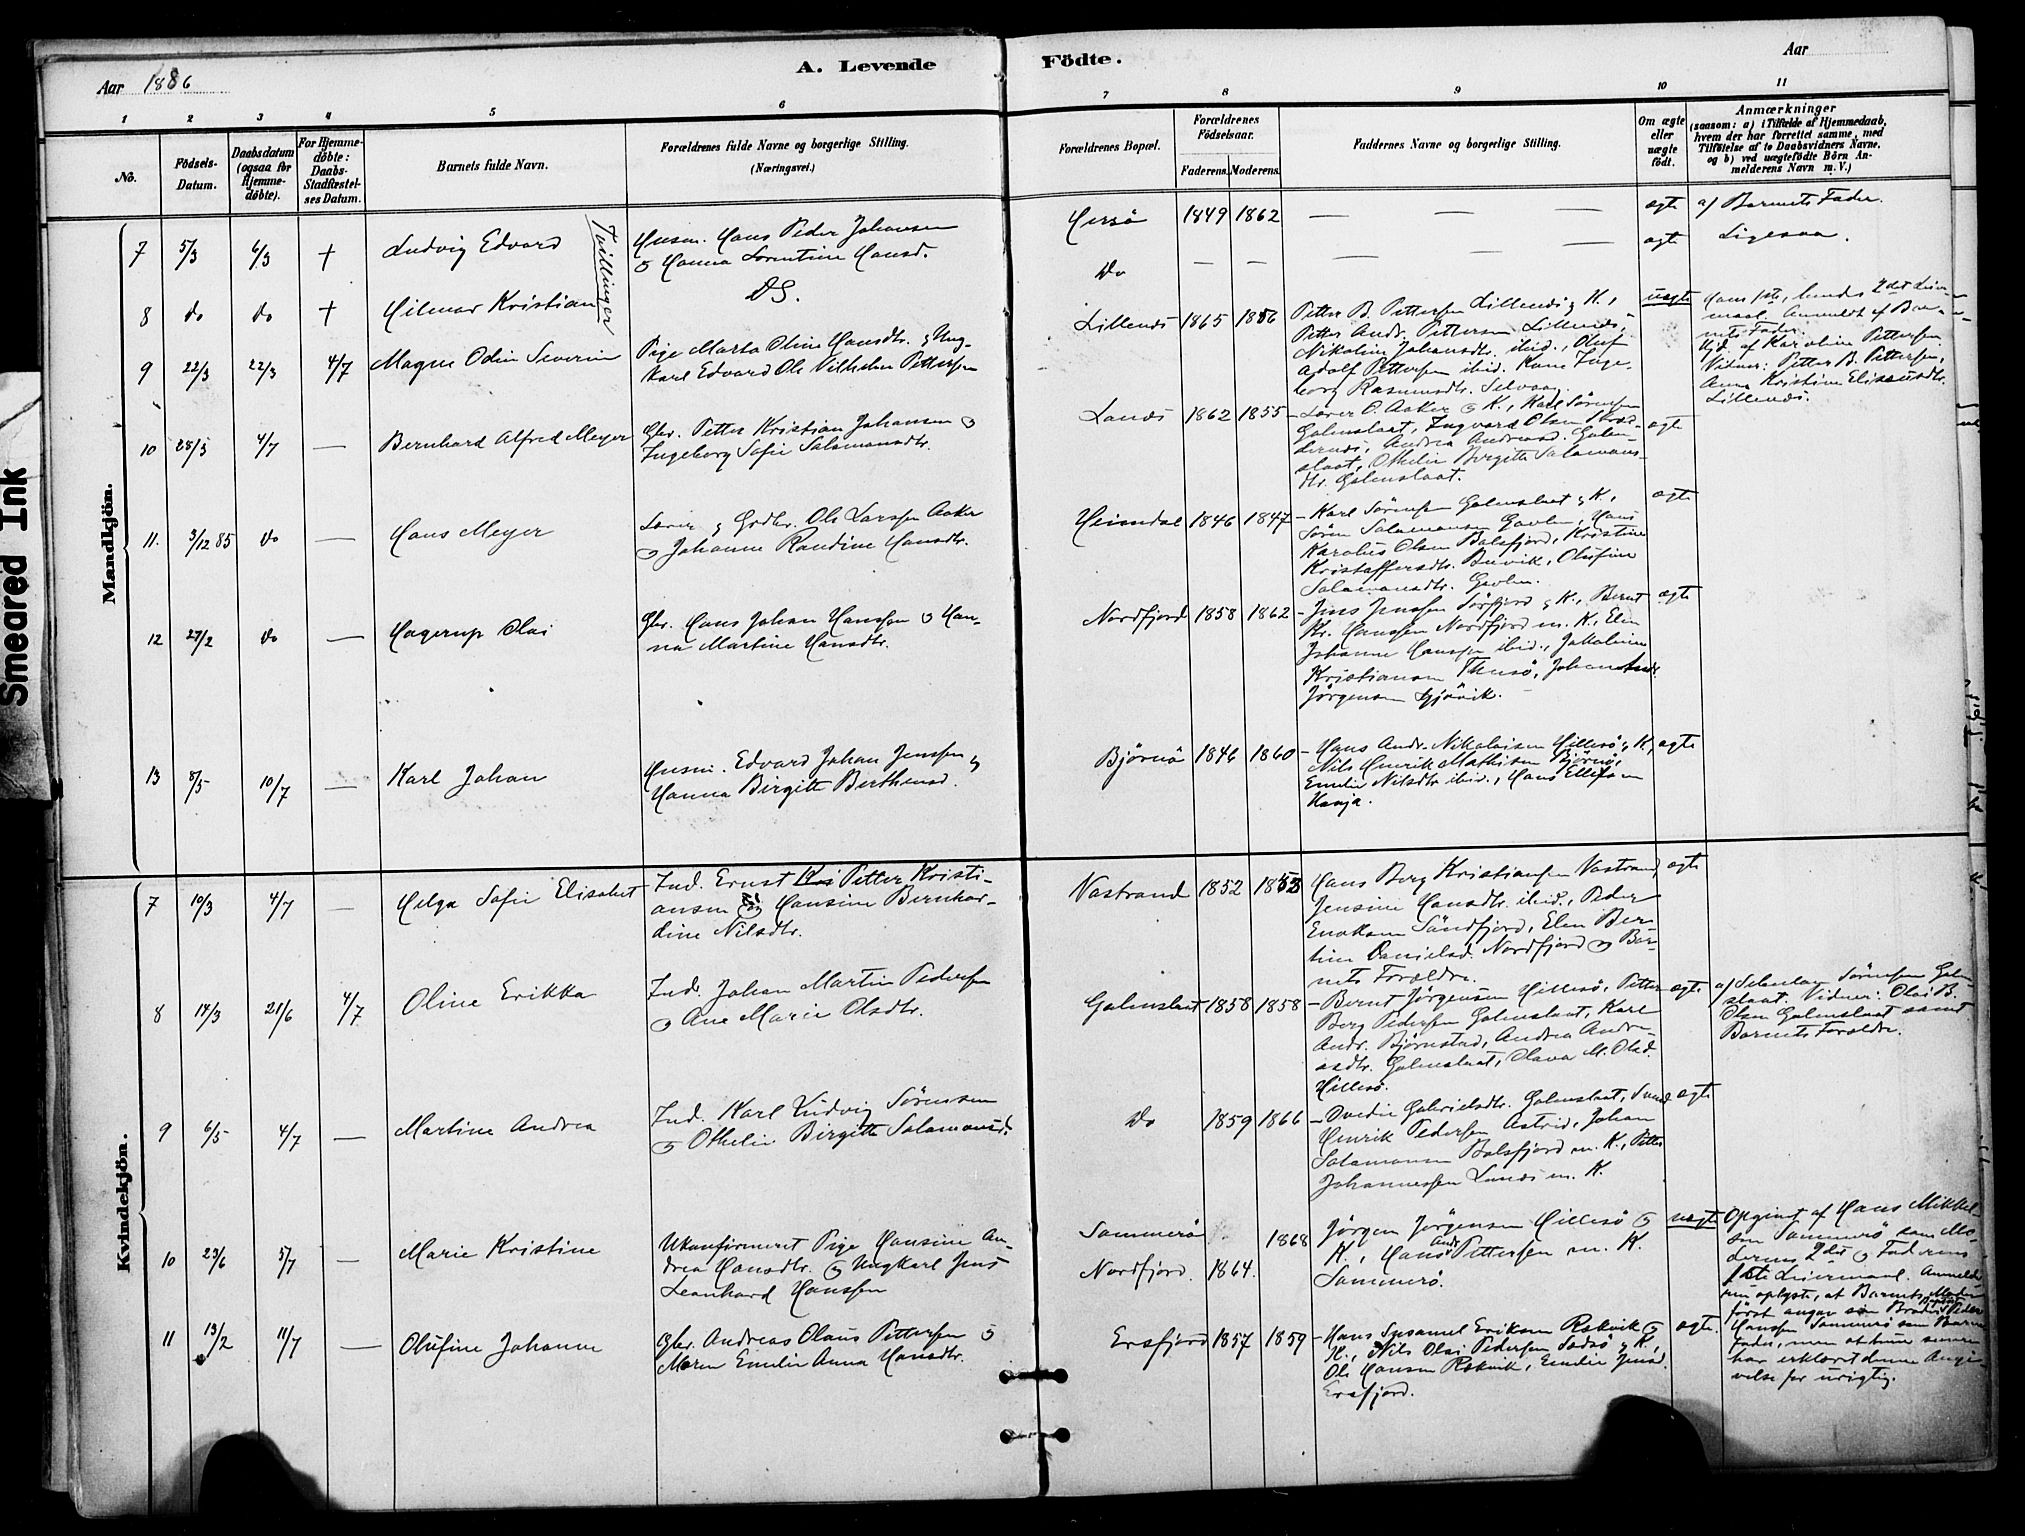 Smeared Ink
Aar 1886
A. Levende Födte.
Aar
1 2 3 4 5 6 7 8 9 10 11
No.
Födsels-Datum.
Daabsdatum (ogsaa for Hjemmedöbte).
For Hjemmedöbte: Daabs-Stadfæstelses Datum.
Barnets fulde Navn.
Forældrenes fulde Navne og borgerlige Stilling.
(Næringsvei.)
Forældrenes Bopæl.
Forældrenes Födselsaar.
Faderens. Moderens.
Faddernes Navne og borgerlige Stilling.
Om ægte eller uægte födt.
Anmærkninger
(saasom: a) i Tilfælde af Hjemmedaab,
hvem der har forrettet samme, med
Tilföielse af to Daabsvidners Navne,
og b) ved uægtefödte Börn Anmelderens Navn m. V.)
Mandkjön.
7 5/3 6/3 + Ludvig Edvard
Tvillinger
Husm. Hans Peder Johansen
og Hanna Lorentine Hansd.
1849 1862 — — —
ægte af Barnets Fader.
8 do do + Hilmar Kristian
DS.
Do — — — — —
ægte Ligesaa.
9 22/3 22/3 4/7 Magne Odin Severin
Pige Marta Oline Hansdtr. og Ung-
karl Edvard Ole Vilhelm Pettersen
Lillenes 1865 1856
Petter B. Pettersen Lillenes og K.,
Petter Andr. Pettersen Lillenes,
Nikoline Johansdtr. ibid., Oluf
Adolf Pettersen ibid. Kane Inge-
borg Rasmusdtr. Selvaag.
uægte Hans 1ste, hendes 2det Leier-
maal. Anmeldt af Bar-
nets Fader.
Hjd. af Karoline Pettersen
Vidner: Petter B. Pettersen,
Anna Kristine Elisæusdtr.
Lillenes.
10 28/3 4/7 — Bernhard Alfred Meyer
Gbr. Petter Kristian Johansen og
Ingeborg Sofie Salamonsdtr.
Lanes 1862 1855
Lærer O. Aaker og K., Karl Sörensen
Galmslaat, Ingvard Olsen
Andrea Andreasd. Galm-
slaat, Othelie Birgitte Salamons-
dtr. Galmslaat.
ægte
11. 3/12 85 do — Hans Meyer
Lærer og Grdbr. Ole Larssen Aaker
og Johanne Randine Hansdtr.
Heimdal 1846 1847
Karl Sörensen Galmslaat og K.,
Sören Salamonsen Gavlen, Hans
Karolius Olsen Balsfjord, Kristine
Kristoffersdtr. Buvik, Olufine
Salamonsdtr. Gavlen.
ægte
12 27/2 do — Hagerup Olai
Gbr. Hans Johan Hanssen og Han-
na Martine Hansdtr.
Nordfjord 1858 1862
Jens Jenssen Sörfjord og K., Bernt
Kr. Hanssen Nordfjord m. K., Elen
Johanne Hanssen ibid., Jakobine
Kristiansen Tussö, Johan Andr.
Jörgensen Gjövik.
ægte
13 8/5 10/7 — Karl Johan
Husm. Edvard Johan Jenssen og
Hanna Birgitte Berthensd.
Björnö 1846 1860
Hans Andr. Nikolaisen Hillesö og K.,
Nils Henrik Mathisen Björnö,
Emelie Nilsdtr. ibid., Hans Ellefsen
Haaja.
ægte
Kvindekjön.
7 10/3 4/7 — Helga Sofie Elisabet
Ind. Ernst Kri Petter Kristi-
ansen og Hansine Bernhar-
dine Nilsdtr.
Nastrand 1852 1853
Hans Berg Kristiansen Nastrand
Jensine Hansdtr. ibid., Peder
Enoksen Sandfjord, Elen Ber-
tine Danielsd. Nordfjord og Bar-
nets Forældre.
ægte
8 14/3 21/6 4/7 Oline Erikka
Ind. Johan Martin Pedersen
og Ane Marie Olsdtr.
Galmslaat 1858 1858
Bernt Jörgensen Hillesö, Petter
Berg Pedersen Galmslaat, Karl
Andr. Björnstad, Andrea Andre-
asdtr. Galmslaat, Olava M. Olsd.
Hillesö.
ægte af Sörensen Galm-
slaat. Vidner: Olai B.
Olsen Galmslaat samt
Barnets Forældre.
9 6/5 4/7 — Martine Andrea
Ind. Karl Ludvig Sörensen
og Othelie Birgitte Salamonsd.
Do 1859 1866
Ovedie Gabrielsdtr. Galmslaat,
Henrik Pedersen Astrid, Johan
Salamonsen Balsfjord m. K., Petter
Johannessen Lanes m. K.
ægte
10 23/6 5/7 — Marie Kristine
Ukonfirmeret Pige Hansine An-
drea Hansdtr. og Ungkarl Jens
Leonhard Hanssen
Sommerö 1868
Nordfjord. 1864.
Jörgen Jörgensen Hillesö og
K., Hans Andr. Pettersen m. K.
Sommerö.
uægte Opgivet af Hans Mikkel-
sen Sommerö som Mo-
derens 2det og Faderens
1ste Leiermaal. Anmelde-
ren oplyste, at Barnets Moder
först angav sin Broder Peder
Hanssen Sommerö som Barnets
Fader, men at hun senere
har erklæret denne Angi-
velse for urigtig.
11 13/2 11/7 — Olufine Johanne
Gbr. Andreas Olaus Pettersen og
Maren Emelie Anna Hansdtr.
Ersfjord 1857 1859
Hans Susamel Eriksen Rekvik og
K., Nils Olai Pedersen Sadsö og K.,
Ole Hansen Rekvik, Emelie Jensd.
Ersfjord.
ægte.